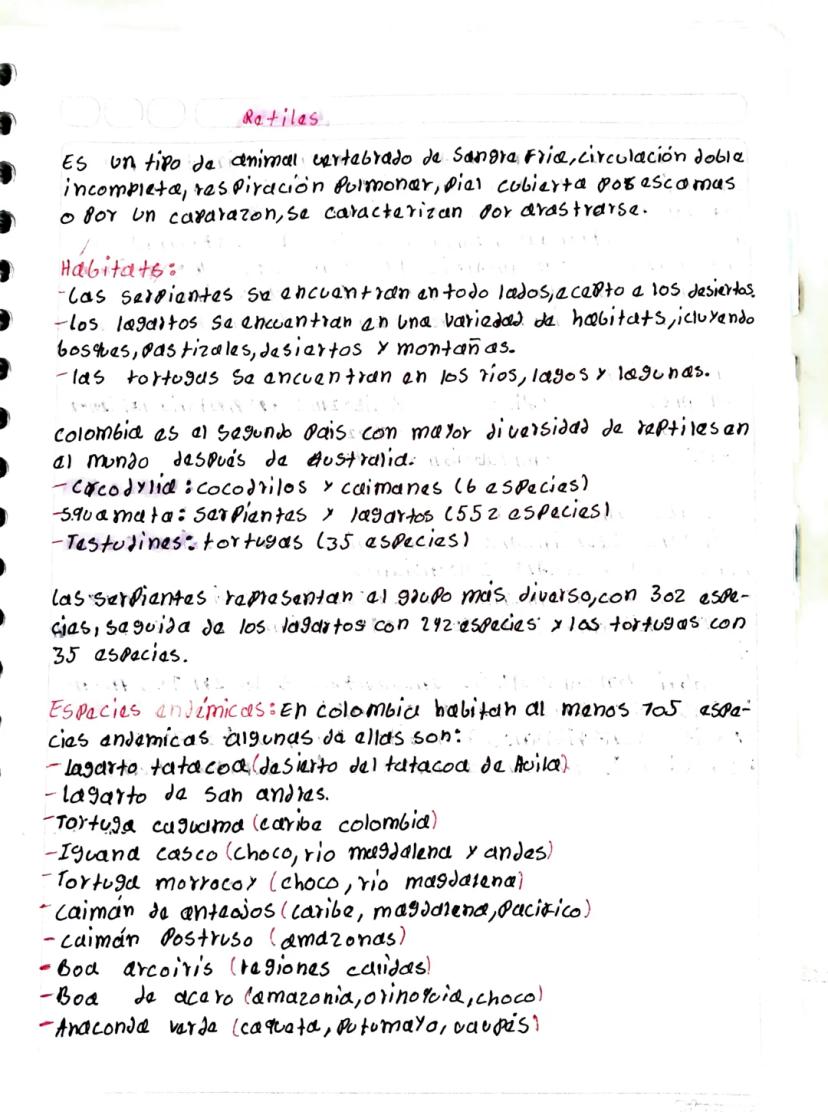 Retiles
Es un tipo de animal vertebrado de sangre fria, circulación doble
incompleta, respiración pulmonar, piel cubierta por escamas
o por un caparazon, se caracterizan por arastrarse.
Hábitats:
-Las serpientes se encuentran en todo lados, acepto a los desiertos.
-los lagartos se encuentran en una variedad de habitats, icluyendo
bosques, pastizales, desiertos y montañas.
-las tortugas se encuentran en los ríos, lagos y lagunas.
Colombia es el segundo pais con mayor diversidad de reptiles en
el mundo después de Australia.
-Cocodylia: cocodrilos y caimanes (6 especies)
-squamata: serpientes y lagartos (552 especies)
-Testudines: tortugas (35 especies)
Las serpientes representan el grupo más diverso, con 302 espe-
cies, seguida de los lagartos con 242 especies y las tortugas con
35 especies.
Especies endémicas: En colombia habitan al menos 105 espe-
cies endemicas algunas de ellas son:
-lagarto tatacoa (desierto del tatacoa de Auila)
-lagarto de san andres.
-Tortuga caguama (caribe colombia)
-Iguana casco (choco, rio magdalena y andes)
-Tortuga morrocoy (choco, río magdalena)
-caimán de anteojos (caribe, magdalena, pacifico)
-caimán postruso (amazonas)
-Boa arcoiris (regiones calidas)
-Boa de acero (amazonia, orinoquia, choco)
-Anaconda verde (caqueta, putumayo, vaupés)